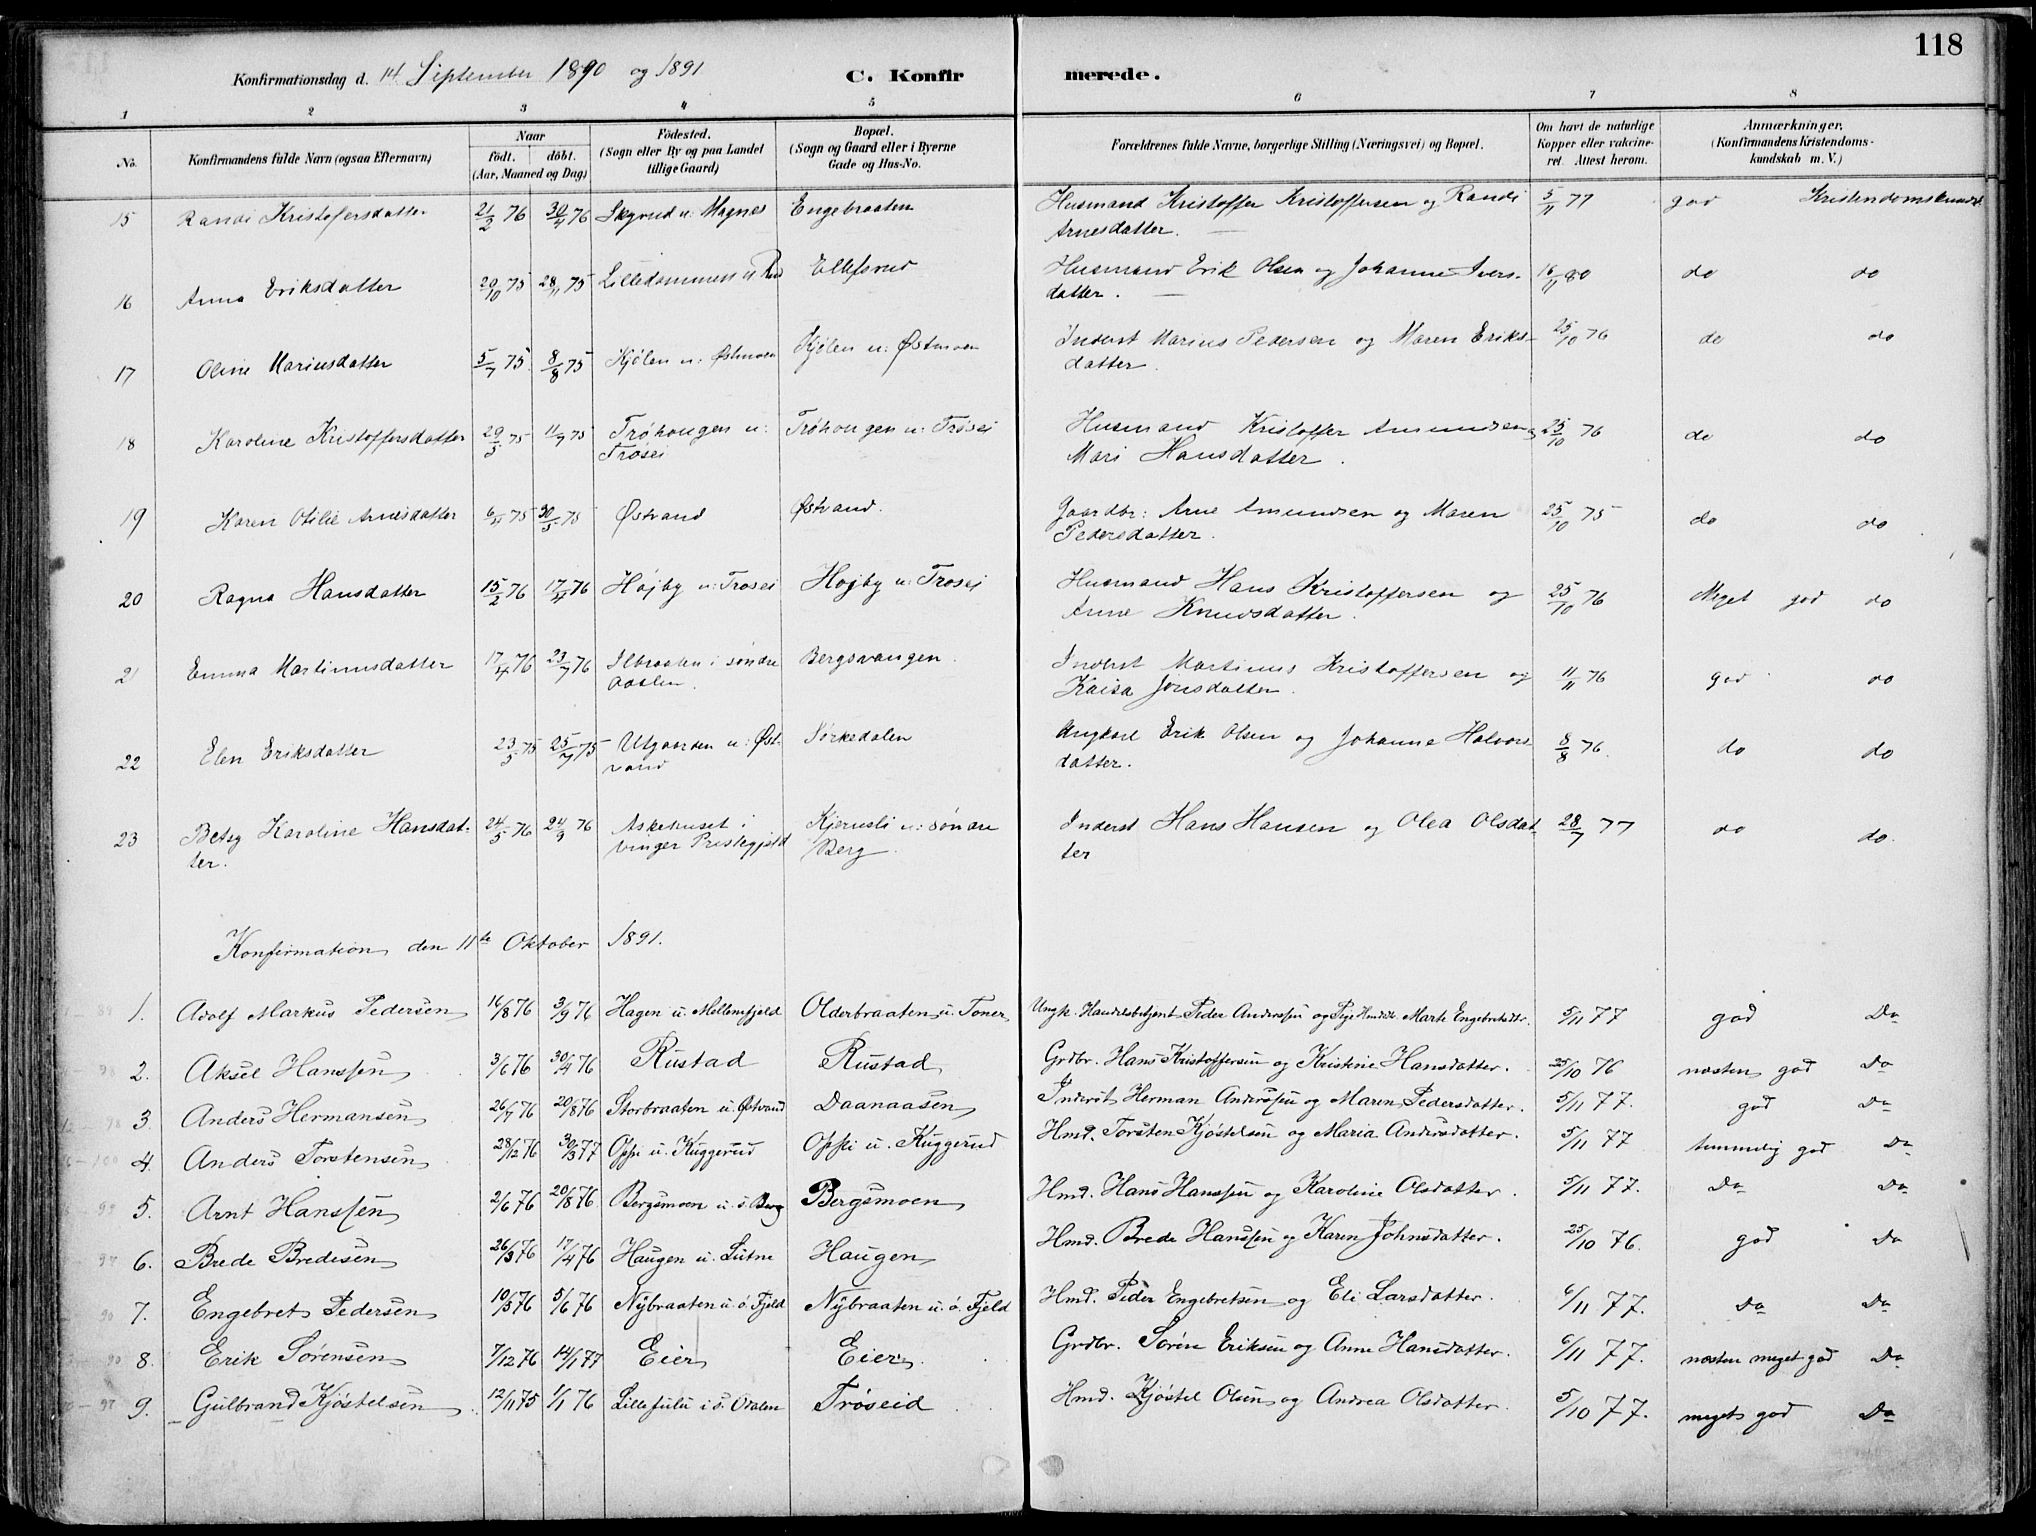 118
Konfirmationsdag d. 14 September 1890 og 1891
C. Konfirmerede.
1 2 3 4 5 6 7 8
No.
Konfirmandens fulde Navn (ogsaa Efternavn)
Naar
födt. döbt.
(Aar, Maaned og Dag)
Födested.
(Sogn eller By og paa Landet
tillige Gaard)
Bopæl.
(Sogn og Gaard eller i Byerne
Gade og Hus-No.
Forældrenes fulde Navne, borgerlige Stilling (Næringsvei) og Bopæl.
Om havt de naturlige
Kopper eller vakcine-
ret. Attest herom.
Anmærkninger,
(Konfirmandens Kristendoms-
kundskab m. V.)
15 Randi Kristofersdatter 21/2 76 30/4 76 Skyrud u: Magnes Engebraaten Husmand Kristoffer Kristoffersen og Randi 5/11 77 god Kristendomskundsk
Arnesdatter.
16 Anna Eriksdatter 29/10 75 28/11 75 Lilledammen u Ellefsrud Husmand Erik Olsen og Johanne Ivers- 16/11 80 do do
datter.
17 Oline Mariusdatter 5/7 75 8/8 75 Kjölen u: Østmoen Kjölen u: Østmoen Inderst Marius Pedersen og Maren Eriks- 25/10 76 do do
datter.
18 Karoline Kristoffersdatter 29/5 75 11/7 75 Trøhougen u: Trøhougen u: Trøsei Husmand Kristoffer Amundsen og 25/10 76 do do
Trosei Mari Hansdatter.
19 Karen Otilie Arnesdatter 6/4 75 30/5 75 Østvand Østvand. Gaardbr: Arne Amundsen og Maren 25/10 75 do do
Pedersdatter.
20 Ragna Hansdatter 15/2 76 17/4 76 Højby u: Trosei Højby u: Trosei Husmand Hans Kristoffersen og 25/10 76 Meget god do
Anne Knudsdatter.
21 Emma Martinusdatter 17/4 76 23/7 76 Ilbraaten i søndre Bergsvangen. Inderst Martinus Kristoffersen og 11/11 76 god do
Kaisa Jonsdatter.
22 Elen Eriksdatter 23/5 75 25/7 75 Utgaarden u: Øst- Sørkedalen Ungkarl Erik Olsen og Johanne Halvors- 8/8 76. do do
vand datter.
23 Betsy Karoline Hansdat- 24/5 76 24/9 76 Askehuset i Kjernsli u: søndre Inderst Hans Hansen og Olea Olsdat- 28/7 77 do do.
ter. Vinger Prestegjeld Berg. ter
Konfirmation den 11te Oktober 1891.
1. Adolf Markus Pedersen 16/8 76 3/9 76 Hagen u. Mellemfjeld Olderbraaten u. Toner Ungk. Handelsbetjent Peder Anderssen og Pige Marte Engebretsdtr. 5/11 77 god Do
2. Aksel Hanssen 3/6 76 30/4 76 Rustad Rustad Grdbr. Hans Kristoffersen og Kristine Hansdatter. 25/10 76 næsten god Do
3. Anders Hermansen 26/7 76 20/8 76 Storbraaten u. Østvand Daanaasen Inderst Herman Anderssen og Maren Pedersdatter. 5/11 77. god Do
4. Anders Torstensen 28/12 76 30/3 77 Oppi u. Kuggerud Oppi u. Kuggerud Hmd. Torsten Kjøstelsen og Maria Andersdatter. 5/11 77 temmelig god Do
5. Arnt Hanssen 2/6 76 20/8 76 Bergsmoen u. s. Berg Bergsmoen Hmd. Hans Hanssen og Karoline Olsdatter. 5/11 77. Do Do
6. Brede Bredesen 26/3 76 17/4 76 Haugen u. Sutne Haugen Hmd. Brede Hanssen og Karen Johnsdatter. 25/10 76. god Do
7. Engebret Pedersen 10/5 76 5/6 76 Nybraaten u. ö. Fjeld Nybraaten u. ö. Fjeld Hmd. Peder Engebretsen og Eli Larsdatter. 6/11 77. Do Do
8. Erik Sørensen 7/12 76 14/1 77 Eier Eier. Grdbr. Søren Eriksen og Anne Hansdatter. 6/11 77. næsten meget god Do
9. Gulbrand Kjøstelsen 12/11 75 1/1 76 Lillefulu i s. Odalen Trøseid Hmd. Kjøstel Olsen og Andrea Olsdatter. 5/10 77. meget god Do